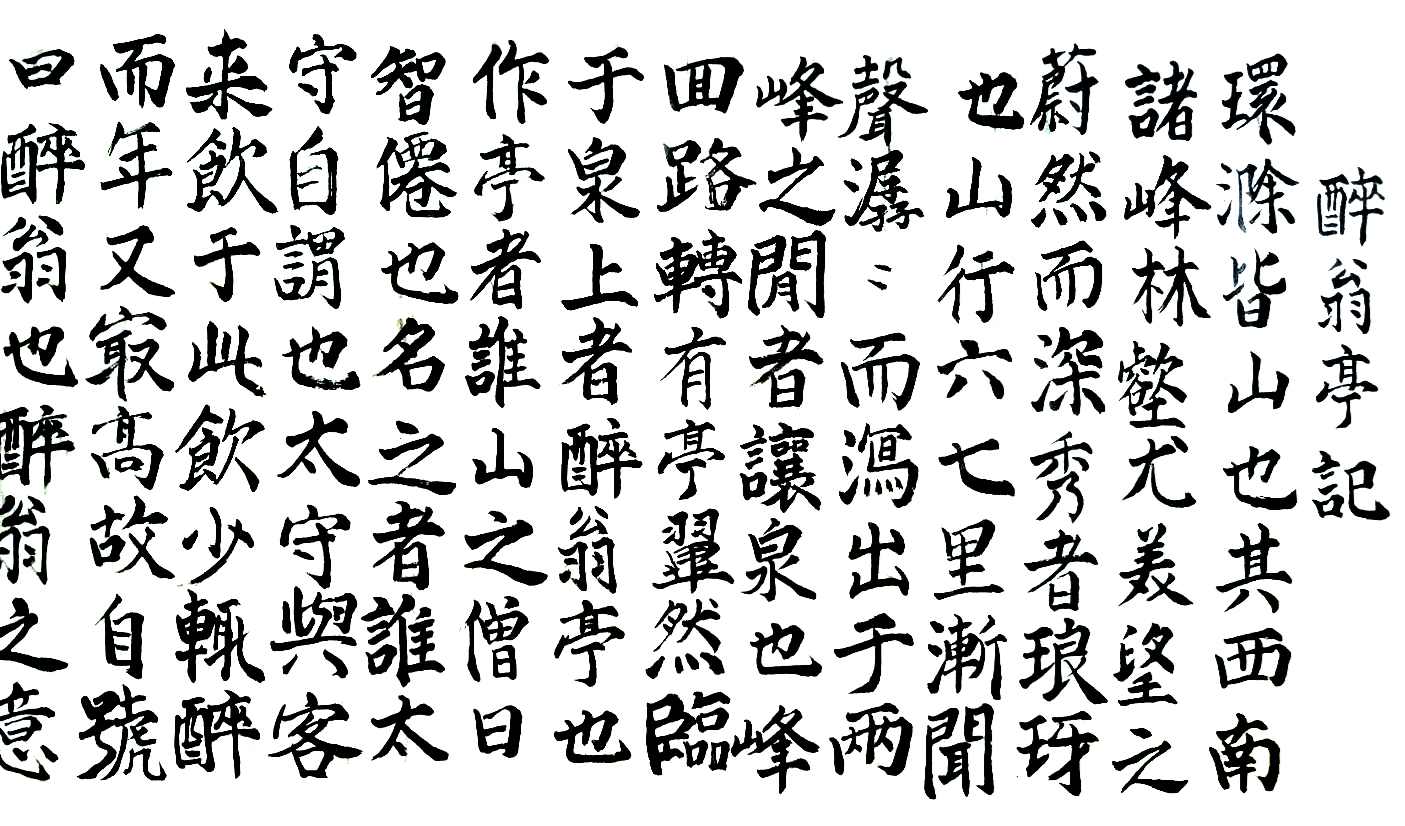 醉翁亭記
環滁皆山也其西南
諸峰林壑尤美望之
蔚然而深秀者琅玡
也山行六七里漸聞
聲潺〻而瀉出于兩
峰之間者讓泉也峰
回路轉有亭翼然臨
于泉上者醉翁亭也
作亭者誰山之僧曰
智僊也名之者誰太
守自謂也太守與客
来飲于此飲少輒醉
而年又冣高故自號
曰醉翁也醉翁之意